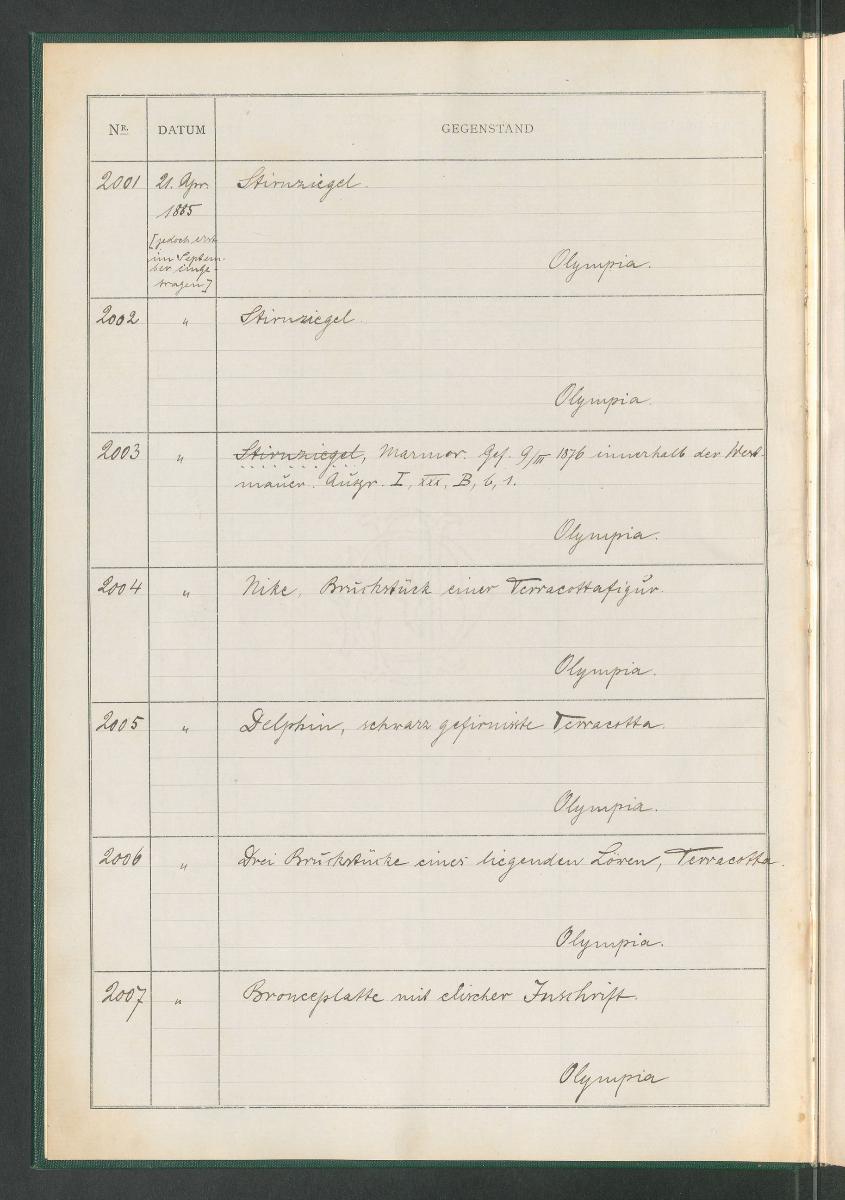 Nr. DATUM GEGENSTAND
2001 21. Apr. Stirnziegel.
1885
[jedoch erst
im Septem-
ber einge-
tragen]
Olympia.
2002 " Stirnziegel.
Olympia.
2003 " Stirnziegel, Marmor. Gef. 9/III 1876 innerhalb der West-
mauer. Ausgr. I, XIX, B, 6, 1.
Olympia.
2004 " Nike, Bruchstück einer Terracottafigur.
Olympia.
2005 " Delphin, schwarz gefirnisste Terracotta.
Olympia.
2006 " Drei Bruchstücke eines liegenden Löwen, Terracotta.
Olympia.
2007 " Bronceplatte mit elischer Inschrift.
Olympia